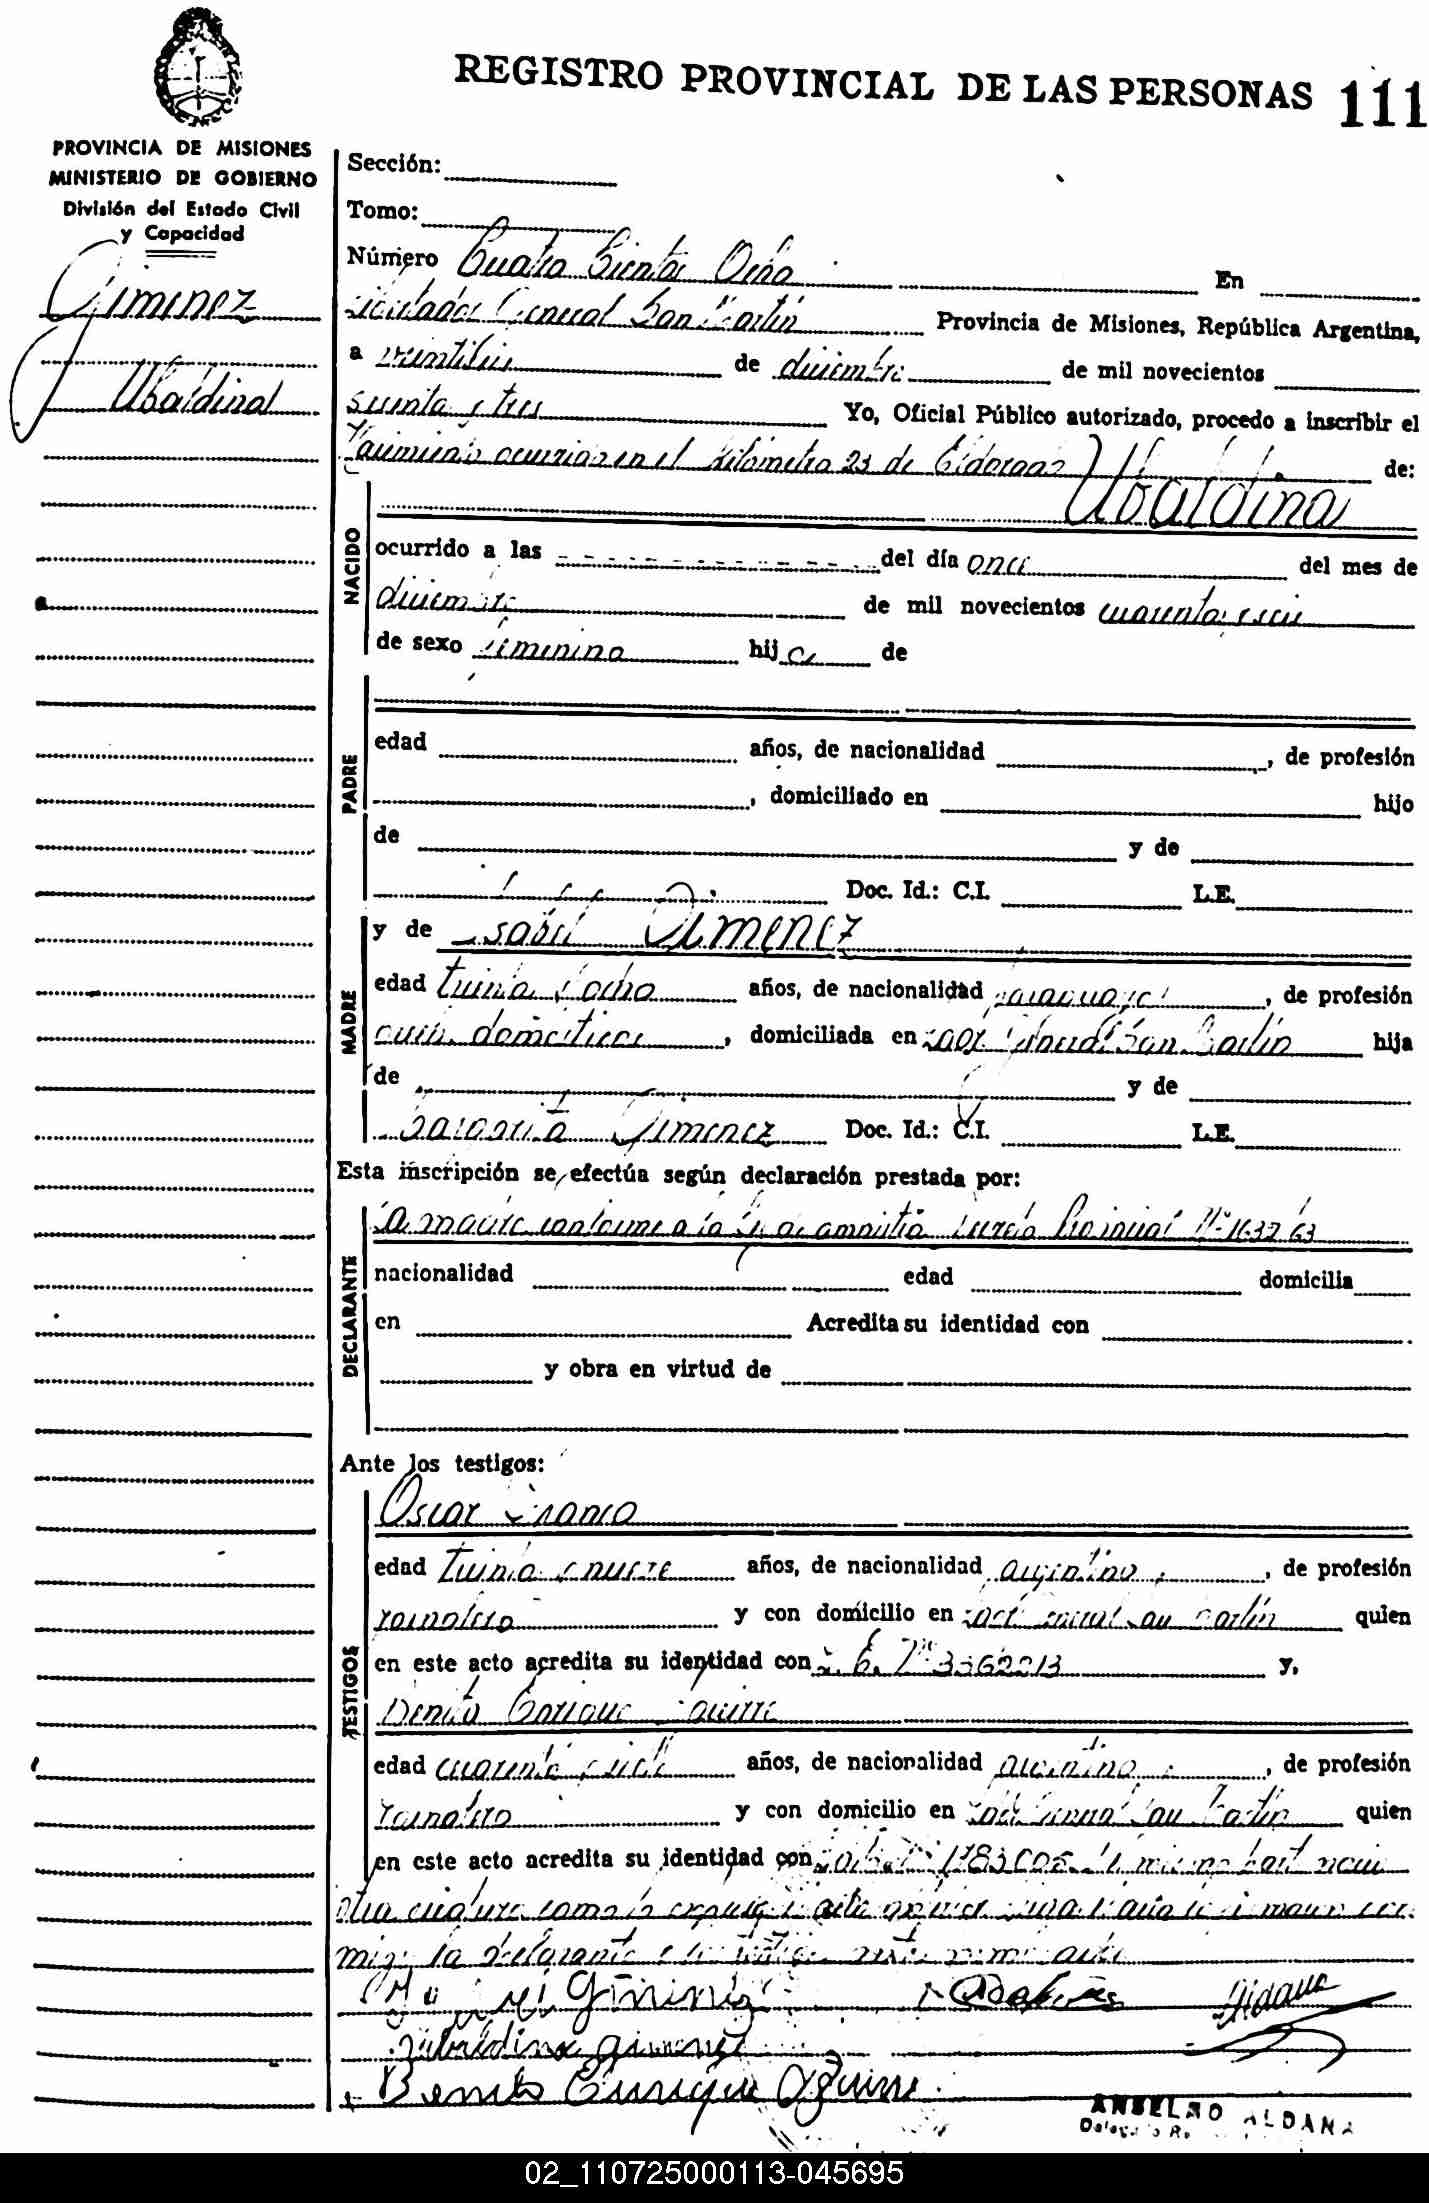 REGISTRO PROVINCIAL DE LAS PERSONAS 111
PROVINCIA DE MISIONES
MINISTERIO DE GOBIERNO
División del Estado Civil
y Capacidad
Gimenez
Ubaldina
Sección:
Tomo:
Número Cuatro Cientos Ocho En
Libertador General San Martín Provincia de Misiones, República Argentina,
a veintiseis de diciembre de mil novecientos
sesenta y tres Yo, Oficial Público autorizado, procedo a inscribir el
Nacimiento ocurrido en el kilómetro 23 de Eldorado de:
Ubaldina
NACIDO
ocurrido a las del día once del mes de
diciembre de mil novecientos cuarenta y seis
de sexo femenino hija de
PADRE
edad años, de nacionalidad , de profesión
, domiciliado en hijo
de y de
Doc. Id.: C.I. L.E.
MADRE
y de Isabel Gimenez
edad treinta y ocho años, de nacionalidad paraguaya , de profesión
queh. domésticos , domiciliada en Lib. General San Martín hija
de y de
Margarita Gimenez Doc. Id.: C.I. L.E.
Esta inscripción se efectúa según declaración prestada por:
DECLARANTE
La madre conforme a la Ley de amnistía Decreto Provincial Nº 1637/63
nacionalidad edad domicilia
en Acredita su identidad con
y obra en virtud de
Ante los testigos:
TESTIGOS
Oscar Franco
edad treinta y nueve años, de nacionalidad argentino , de profesión
jornalero y con domicilio en General San Martín quien
en este acto acredita su identidad con L. E. Nº 3362213 y,
Benito Enrique Aguirre
edad cuarenta y siete años, de nacionalidad argentino , de profesión
jornalero y con domicilio en General San Martín quien
en este acto acredita su identidad con
otra
migo la declarante y los testigos
Gimenez
Ubaldina Gimenez
Aldana
Benito Enrique Aguirre
ANSELMO ALDANA
02_110725000113-045695